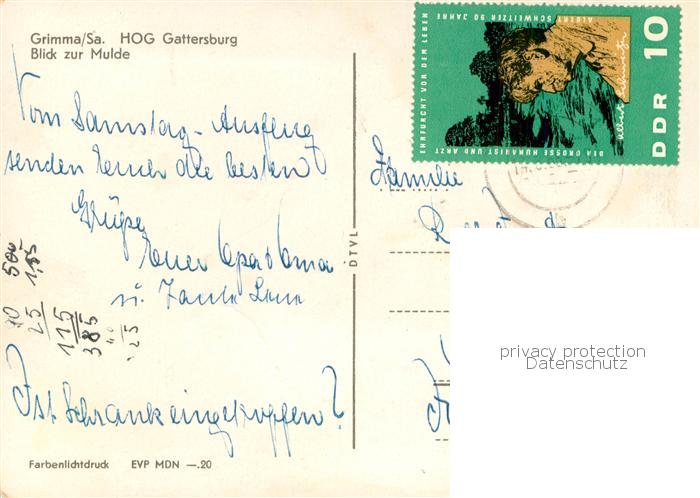 Grimma/Sa. HOG Gattersburg
Blick zur Mulde
Vom Samstag-Ausflug
senden Euch die besten
Grüße
Euer Opa Oma
u. Tante Lene
Ist Schrank eingetroffen?
500
1,85
70
25
115
385
40
25
Farbenlichtdruck EVP MDN —.20
DTVL
EHRFURCHT VOR DEM LEBEN
ALBERT SCHWEITZER 90 JAHRE
DER GROSSE HUMANIST UND ARZT
DDR 10
Familie
privacy protection
Datenschutz